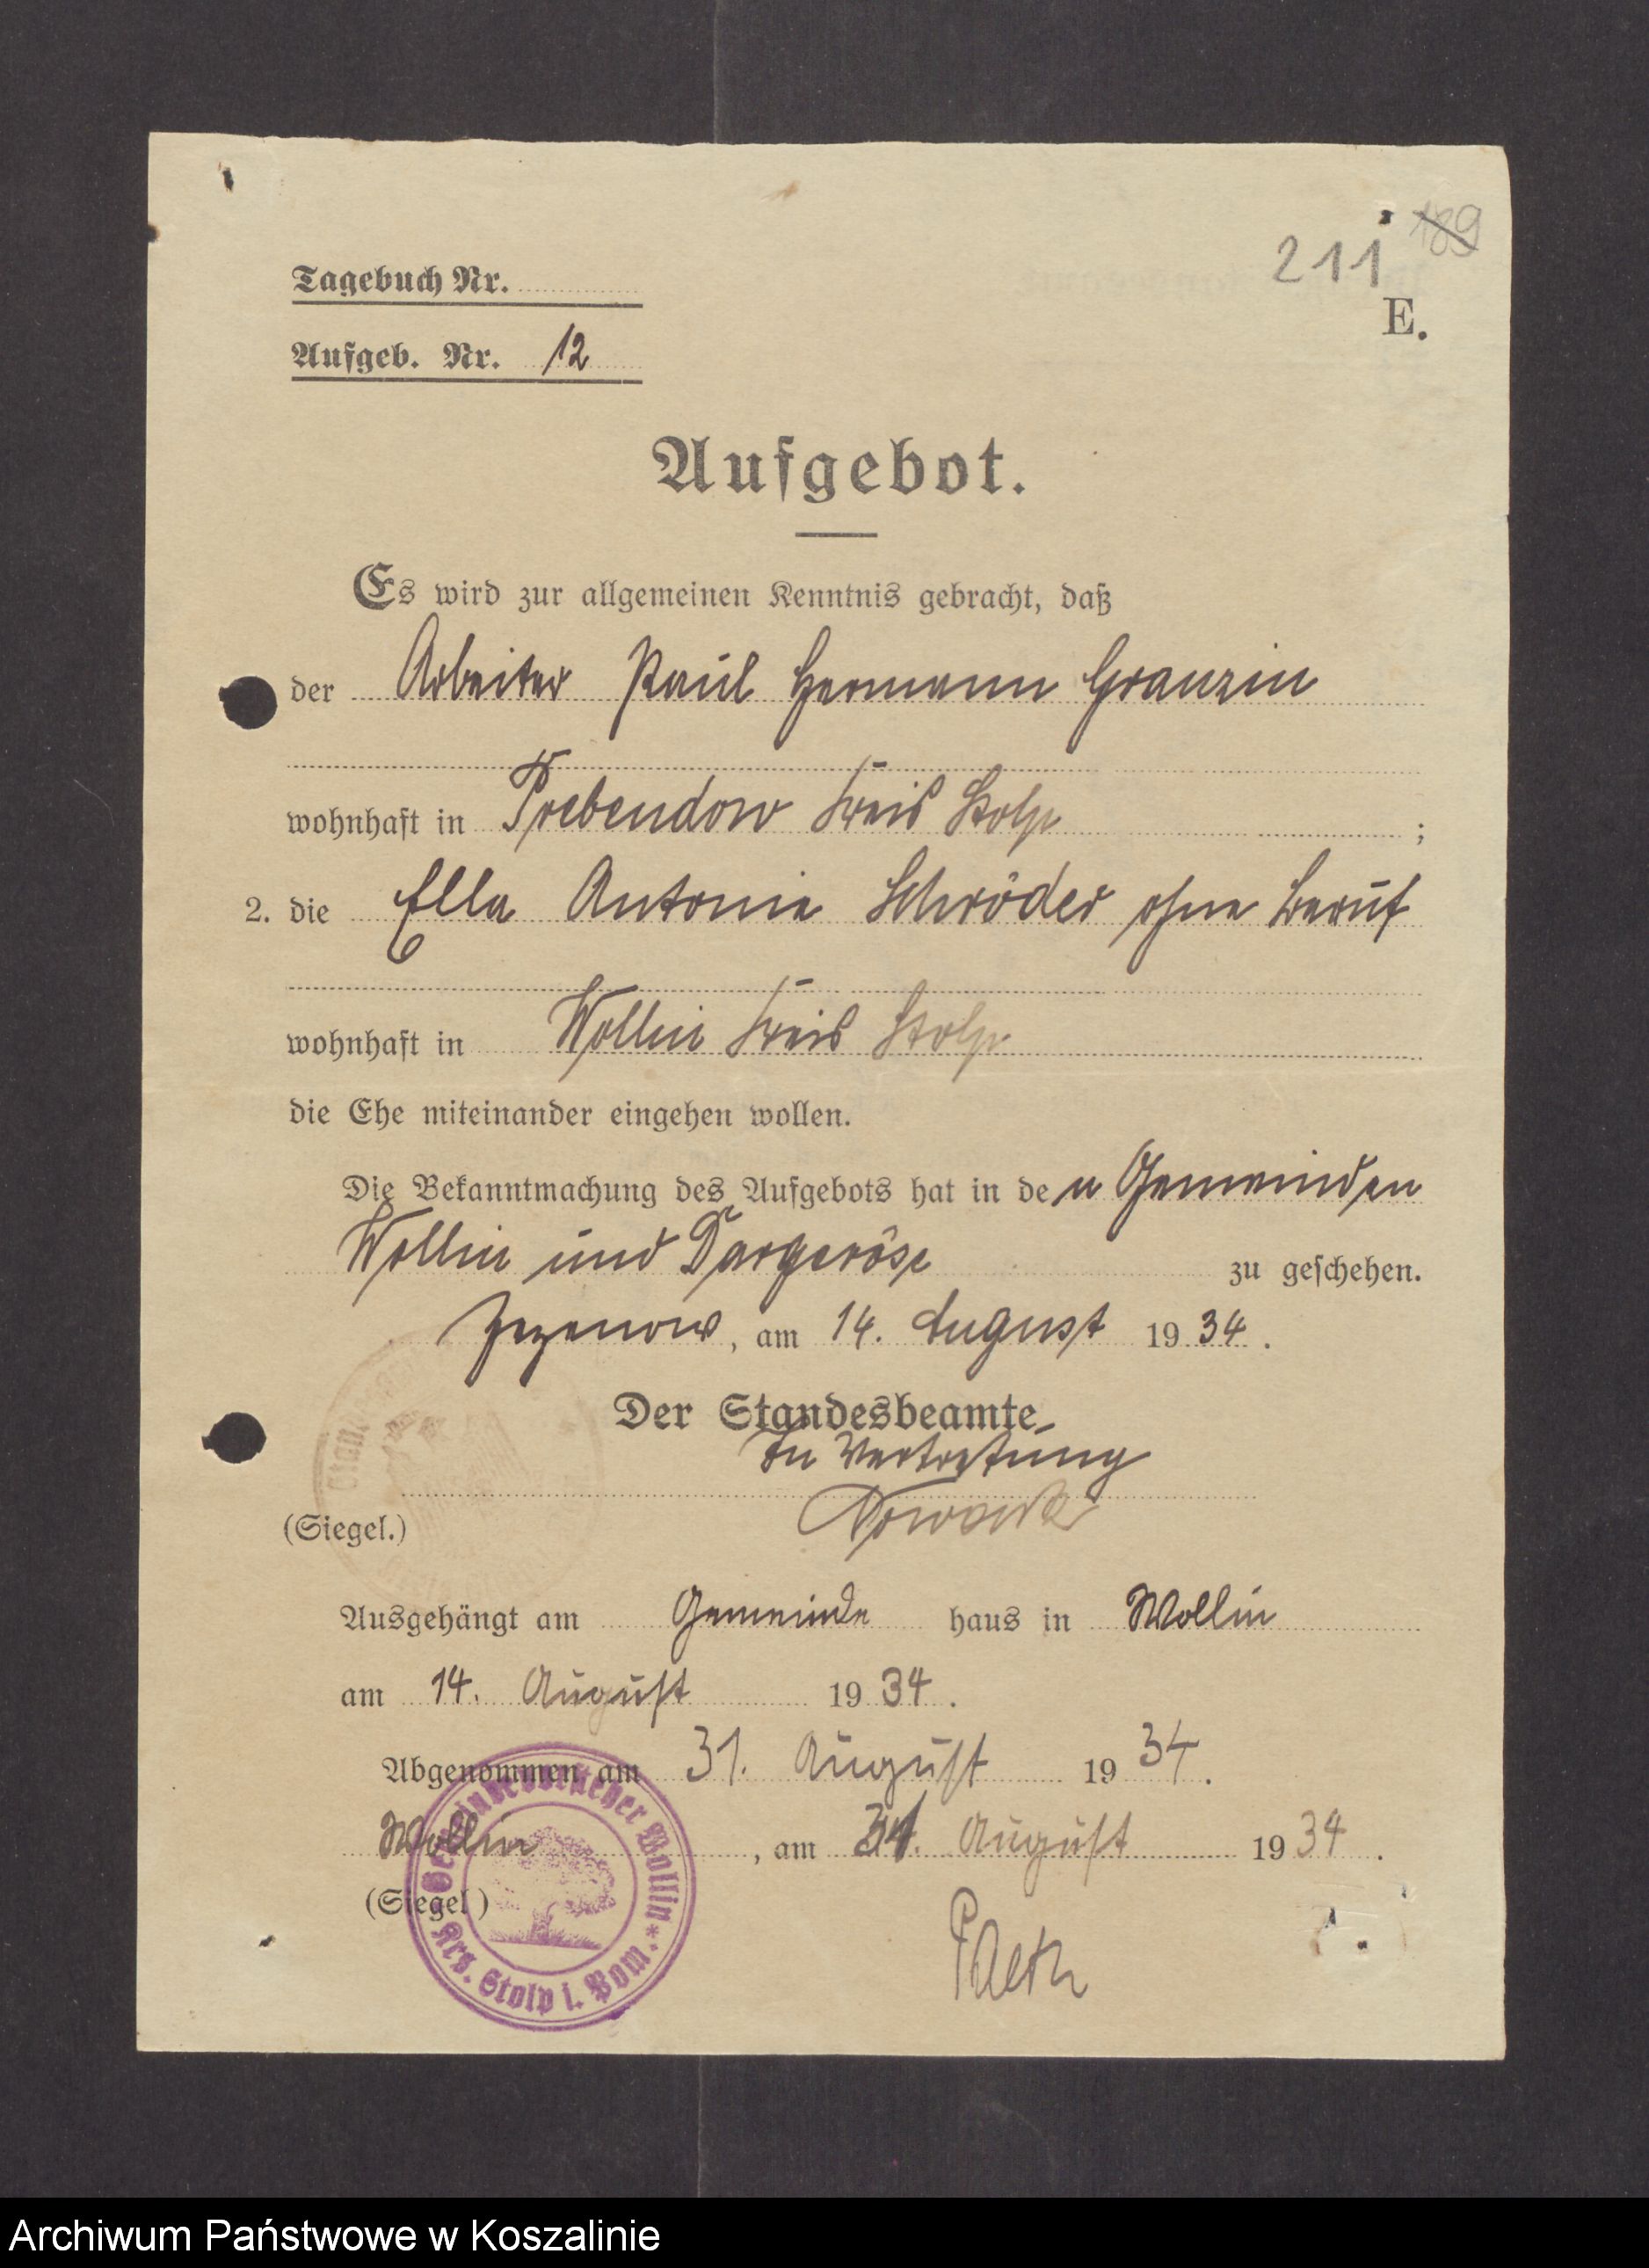 189
211
E.
Tagebuch Nr.
Aufgeb. Nr. 12
Aufgebot.
Es wird zur allgemeinen Kenntnis gebracht, daß
der Arbeiter Paul Hermann Granzin
wohnhaft in Prebendow Kreis Stolp ;
2. die Ella Antonie Schröder ohne Beruf
wohnhaft in Wollin Kreis Stolp
die Ehe miteinander eingehen wollen.
Die Bekanntmachung des Aufgebots hat in den Gemeinden
Wollin und Dargeröse zu geschehen.
Zezenow, am 14. August 1934.
Der Standesbeamte
In Vertretung
(Siegel.)
Ausgehängt am Gemeinde haus in Wollin
am 14. August 1934.
Abgenommen am 31. August 1934.
Wollin, am 31. August 1934.
(Siegel)
Gemeindevorsteher Wollin * Krs. Stolp i. Pom. *
Archiwum Państwowe w Koszalinie